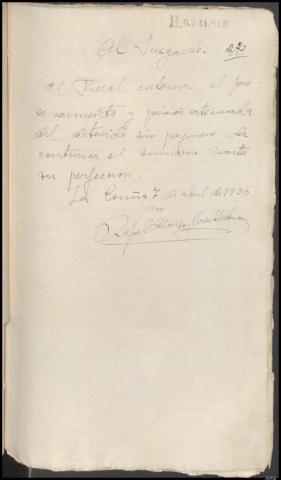 Al Juzgado. 22
El Fiscal interesa el pro-
cesamiento y prisión
del detenido sin perjuicio de
continuar el sumario hasta
su perfección.
La Coruña 7 de abril de 1936
Rafael Alonso